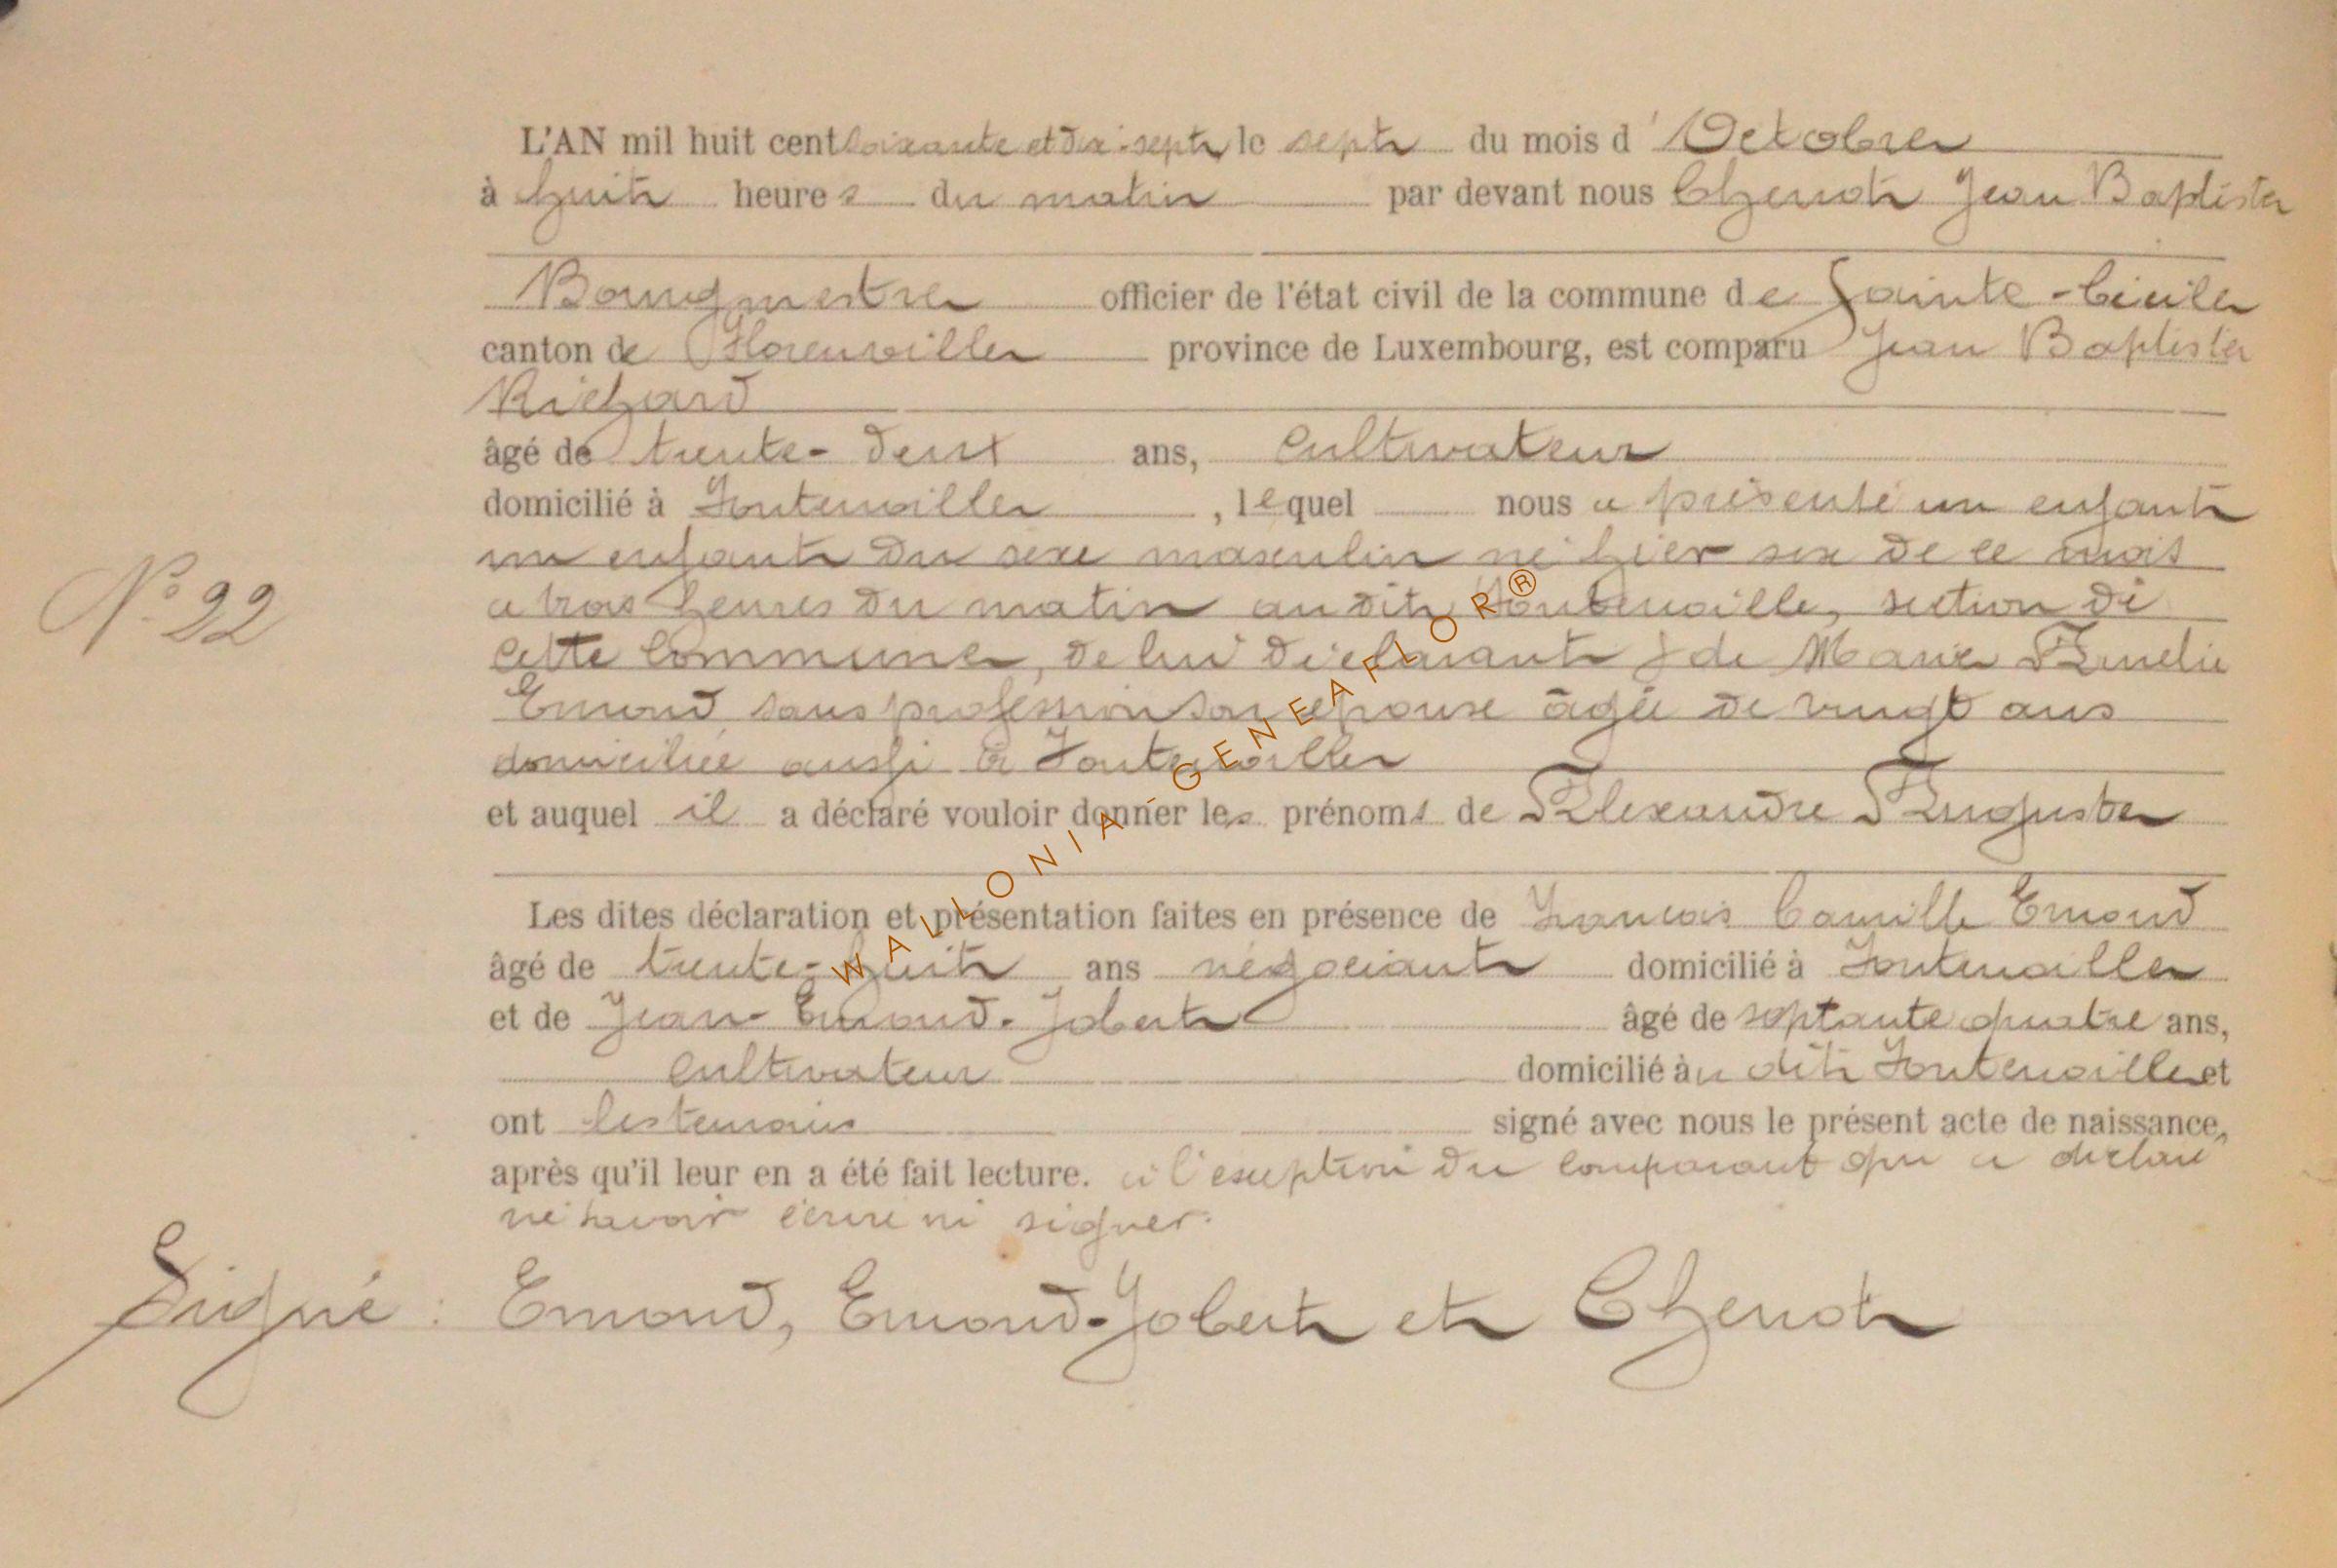 L'AN mil huit cent soixante et dix-sept le sept du mois d'Octobre
à huit heures du matin par devant nous Chenot Jean Baptiste
Bourgmestre officier de l'état civil de la commune de Sainte-Cécile
canton de Florenville province de Luxembourg, est comparu Jean Baptiste
Richard
âgé de trente-deux ans, cultivateur
domicilié à Fontenoille, lequel nous a présenté un enfant
un enfant du sexe masculin né hier six de ce mois
a trois heures du matin au dit Fontenoille, section de
cette commune, de lui déclarant & de Marie Amelie
N° 22
Emond sans profession son épouse âgée de vingt ans
domiciliée aussi à Fontenoille
et auquel il a déclaré vouloir donner les prénoms de Alexandre Auguste
Les dites déclaration et présentation faites en présence de Francois Camille Emond
âgé de trente-huit ans négociant domicilié à Fontenoille
et de Jean Emond-Jobert âgé de septante quatre ans,
cultivateur domicilié au dit Fontenoille et
ont les temoins signé avec nous le présent acte de naissance,
après qu'il leur en a été fait lecture. à l'exception du comparant qui a déclaré
ne savoir écrire ni signer.
Signé : Emond, Emond-Jobert et Chenot
WALLONIA-GENEAFLOR®